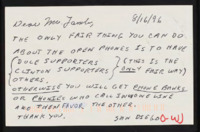 Dear Mr. Jacobs, 8/16/96
THE ONLY FAIR THING YOU CAN DO
ABOUT THE OPEN PHONES IS TO HAVE
{ DOLE SUPPORTERS } (THIS IS THE
{ CLINTON SUPPORTERS } ONLY FAIR WAY)
OTHERS.
OTHERWISE YOU WILL GET PHONE BANKS
OR PHONIES WHO CALL IN ONE LINE
ARE THEM FAVOR THE OTHER.
THANK YOU, SAN DIEGO